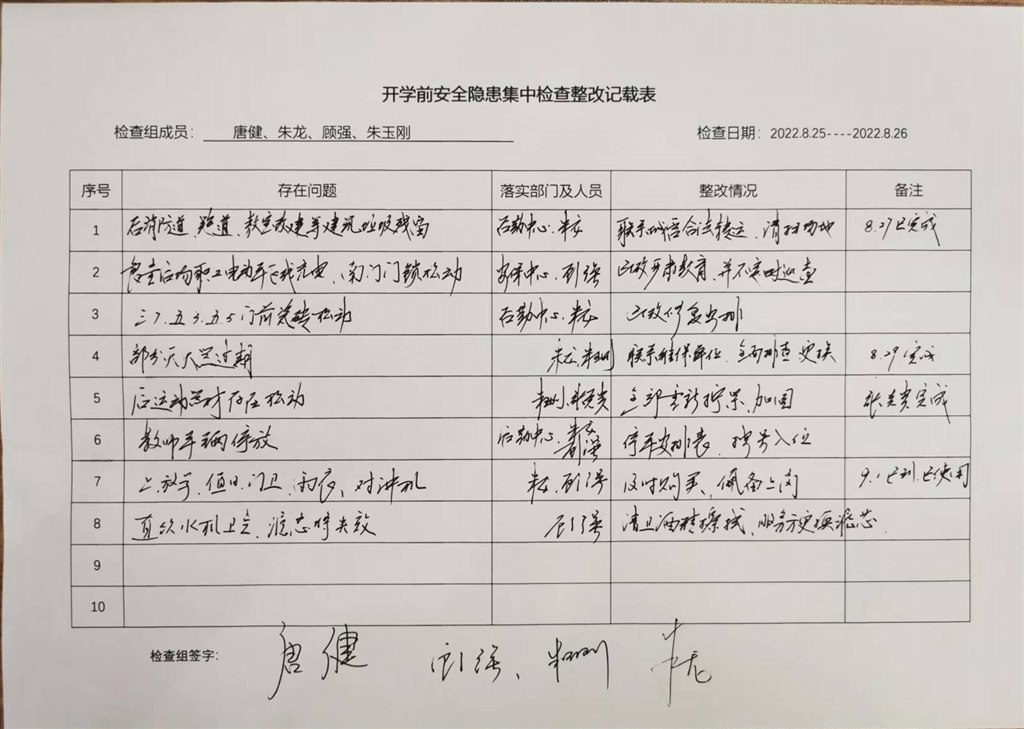 开学前安全隐患集中检查整改记载表
检查组成员: 唐健、朱龙、顾强、朱玉刚 检查日期: 2022.8.25----2022.8.26
序号 存在问题 落实部门及人员 整改情况 备注
1 后消防道、跑道、教室改建等建筑垃圾残留 后勤中心、朱龙 联系 清扫场地 8.27已完成
2 食堂后 电动车 充电、南门门锁松动 安保中心、顾强 教育、并不定时巡查
3 三7、五3、五5门前瓷砖松动 后勤中心、朱龙
4 部分灭火器过期 朱龙、朱玉刚 联系维保单位、全面排查 更换 8.29完成
5 后运动器材存在松动 朱玉刚、 全部重新拧紧、加固 完成
6 教师车辆停放 后勤中心、朱龙 顾强 停车安排表、 入位
7 上放学、值日、门卫、 对讲机 朱龙、顾强 及时购买、佩备上岗 9.1已到已使用
8 直饮水机卫生、滤芯等失效 顾强 清卫酒精擦拭、服务方更换滤芯.
9
10
检查组签字: 唐健 顾强、朱玉刚 朱龙